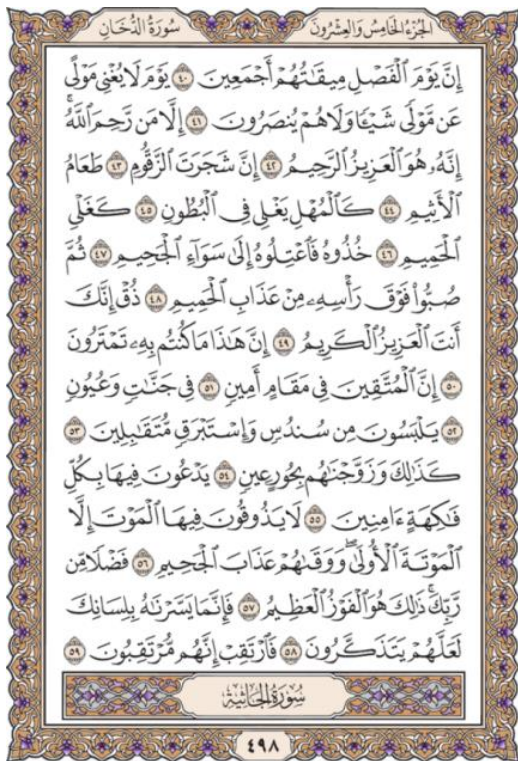 سُورَةُ الدُّخَانِ الجُزْءُ الخَامِسُ وَالعِشْرُونَ
إِنَّ يَوْمَ ٱلْفَصْلِ مِيقَٰتُهُمْ أَجْمَعِينَ ٤٠ يَوْمَ لَا يُغْنِي مَوْلًى
عَن مَّوْلًى شَيْـًٔا وَلَا هُمْ يُنصَرُونَ ٤١ إِلَّا مَن رَّحِمَ ٱللَّهُۚ
إِنَّهُۥ هُوَ ٱلْعَزِيزُ ٱلرَّحِيمُ ٤٢ إِنَّ شَجَرَتَ ٱلزَّقُّومِ ٤٣ طَعَامُ
ٱلْأَثِيمِ ٤٤ كَٱلْمُهْلِ يَغْلِي فِي ٱلْبُطُونِ ٤٥ كَغَلْيِ
ٱلْحَمِيمِ ٤٦ خُذُوهُ فَٱعْتِلُوهُ إِلَىٰ سَوَآءِ ٱلْجَحِيمِ ٤٧ ثُمَّ
صُبُّوا۟ فَوْقَ رَأْسِهِۦ مِنْ عَذَابِ ٱلْحَمِيمِ ٤٨ ذُقْ إِنَّكَ
أَنتَ ٱلْعَزِيزُ ٱلْكَرِيمُ ٤٩ إِنَّ هَٰذَا مَا كُنتُم بِهِۦ تَمْتَرُونَ
٥٠ إِنَّ ٱلْمُتَّقِينَ فِي مَقَامٍ أَمِينٍ ٥١ فِي جَنَّٰتٍ وَعُيُونٍ
٥٢ يَلْبَسُونَ مِن سُندُسٍ وَإِسْتَبْرَقٍ مُّتَقَٰبِلِينَ ٥٣
كَذَٰلِكَ وَزَوَّجْنَٰهُم بِحُورٍ عِينٍ ٥٤ يَدْعُونَ فِيهَا بِكُلِّ
فَٰكِهَةٍ ءَامِنِينَ ٥٥ لَا يَذُوقُونَ فِيهَا ٱلْمَوْتَ إِلَّا
ٱلْمَوْتَةَ ٱلْأُولَىٰۖ وَوَقَىٰهُمْ عَذَابَ ٱلْجَحِيمِ ٥٦ فَضْلًا مِّن
رَّبِّكَۚ ذَٰلِكَ هُوَ ٱلْفَوْزُ ٱلْعَظِيمُ ٥٧ فَإِنَّمَا يَسَّرْنَٰهُ بِلِسَانِكَ
لَعَلَّهُمْ يَتَذَكَّرُونَ ٥٨ فَٱرْتَقِبْ إِنَّهُم مُّرْتَقِبُونَ ٥٩
سُورَةُ الجَاثِيَةِ
٤٩٨